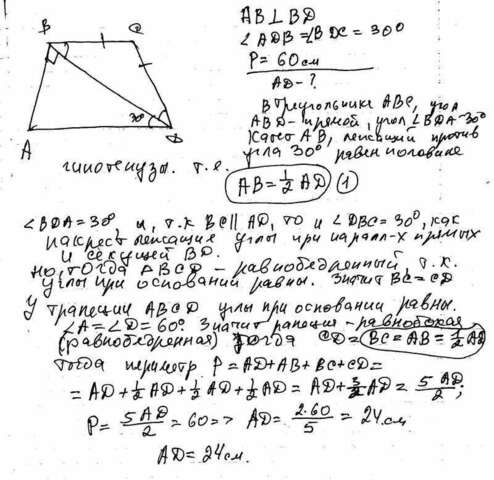 B C
30°
A D
AB⊥BD
∠ADB=∠BDC=30°
P=60см
AD-?
В треугольнике ABC, угол
ABD- прямой, угол ∠BDA=30°
Катет AB, лежащий против
угла 30° равен половине
гипотенузы. т.е. AB=½AD (1)
∠BDA=30° и, т.к BC∥AD, то и ∠DBC=30°, как
накрест лежащие углы при паралл-х прямых
и секущей BD.
но, тогда ΔBCD - равнобедренный т.к.
углы при основании равны. Значит BC=CD
У трапеции ABCD углы при основании равны.
∠A=∠D=60° Значит рапеция - равнобокая
(равнобедренная) тогда CD= BC=AB=½AD
Тогда периметр P=AD+AB+BC+CD=
=AD+½AD+½AD+½AD=AD+3/2AD=5AD/2;
P=5AD/2=60=> AD=2·60/5=24см
AD=24см.